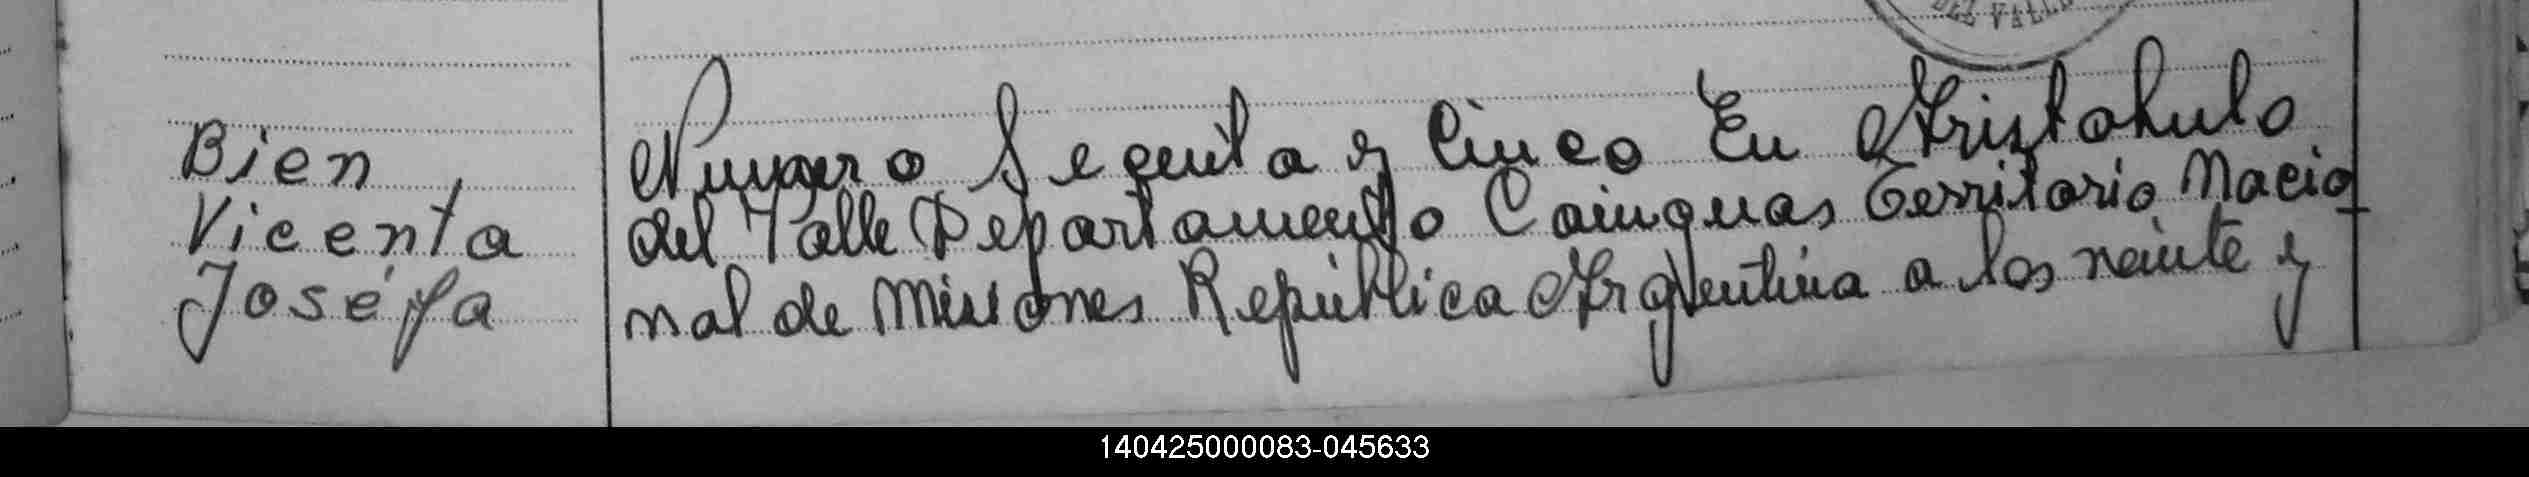 DEL VALLE
Bien
Vicenta
Joséfa
Numero Secenta y Cinco En Aristobulo
del Valle Departamento Cainguas Territorio Nacio
nal de Misiones República Argentina a los veinte y
140425000083-045633